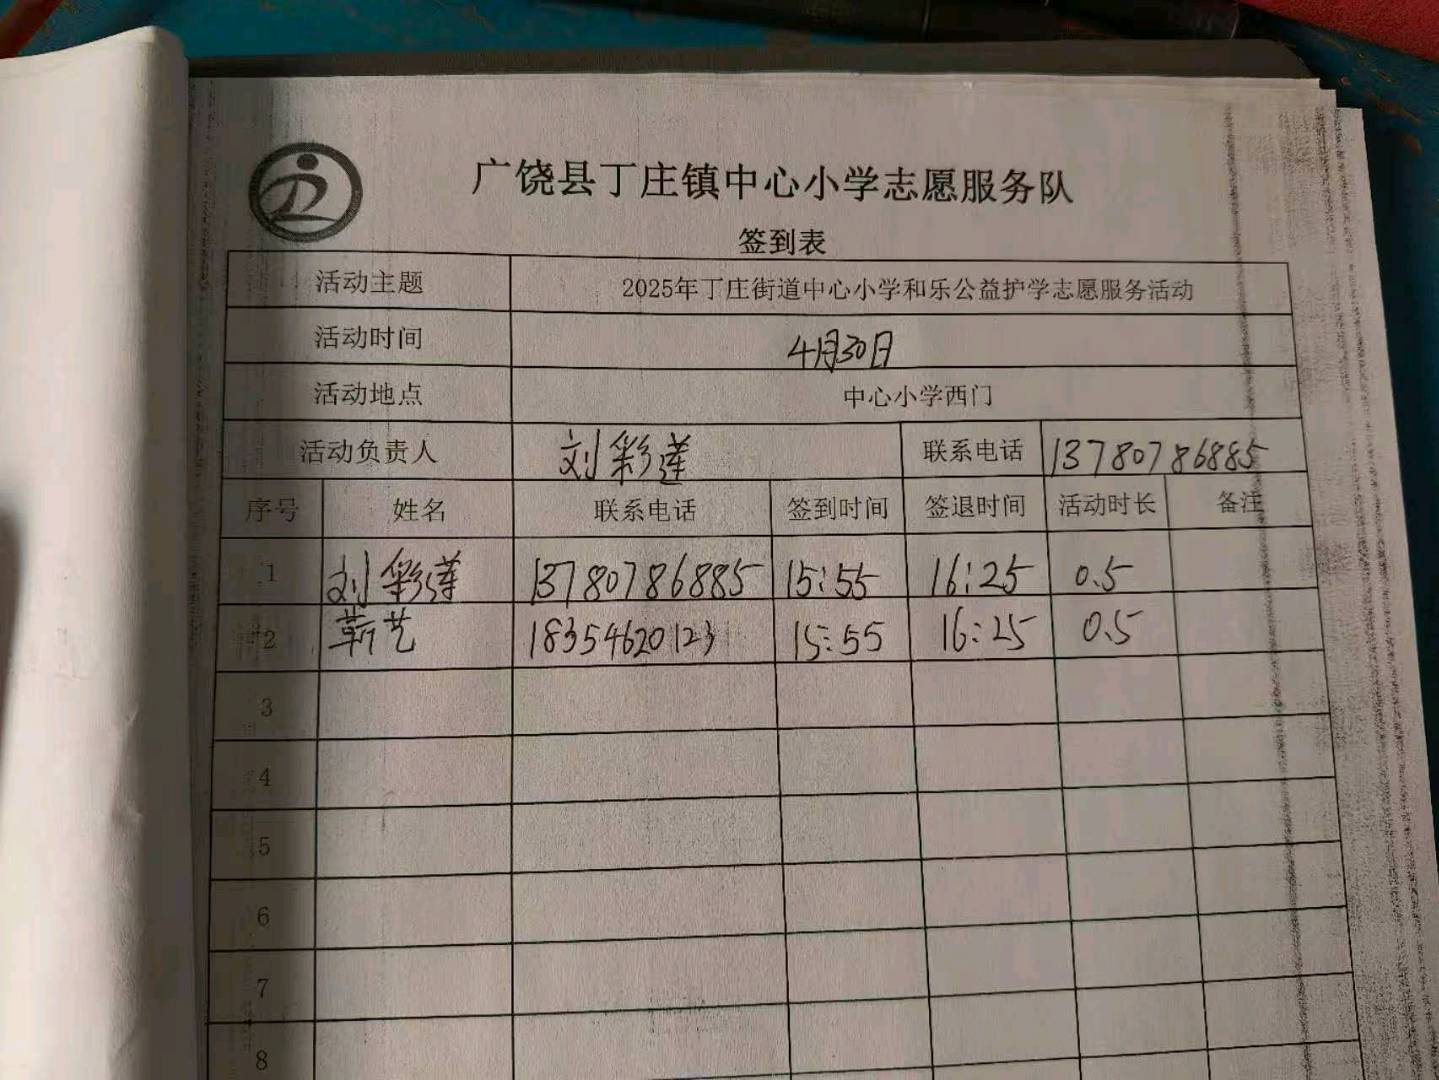 广饶县丁庄镇中心小学志愿服务队
签到表
活动主题 2025年丁庄街道中心小学和乐公益护学志愿服务活动
活动时间 4月30日
活动地点 中心小学西门
活动负责人 刘彩莲 联系电话 13780786885
序号 姓名 联系电话 签到时间 签退时间 活动时长 备注
1 刘彩莲 13780786885 15:55 16:25 0.5
2 靳艺 18354620123 15:55 16:25 0.5
3
4
5
6
7
8